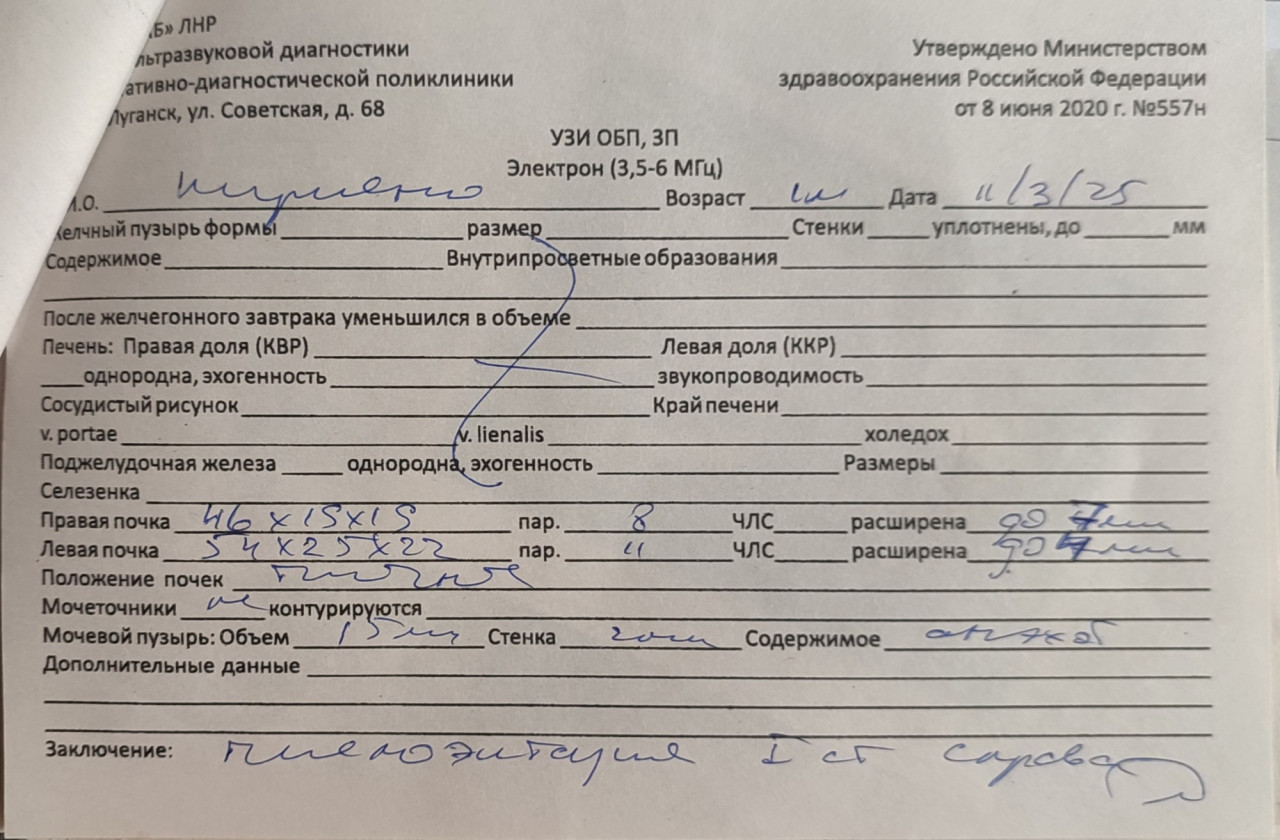 Б» ЛНР
льтразвуковой диагностики
ативно-диагностической поликлиники
Луганск, ул. Советская, д. 68
Утверждено Министерством
здравоохранения Российской Федерации
от 8 июня 2020 г. №557н
УЗИ ОБП, ЗП
Электрон (3,5-6 МГц)
И.О. Возраст Дата 11/3/25
желчный пузырь формы размер Стенки уплотнены, до мм
Содержимое Внутрипросветные образования
После желчегонного завтрака уменьшился в объеме
Печень: Правая доля (КВР) Левая доля (ККР)
однородна, эхогенность звукопроводимость
Сосудистый рисунок Край печени
v. portae v. lienalis холедох
Поджелудочная железа однородна, эхогенность Размеры
Селезенка
Правая почка 46х15х15 пар. 8 ЧЛС расширена до 7мм
Левая почка 54х25х22 пар. 11 ЧЛС расширена до мм
Положение почек типичное
Мочеточники не контурируются
Мочевой пузырь: Объем 15мл Стенка Содержимое
Дополнительные данные
Заключение: пиелоэктазия I ст справа